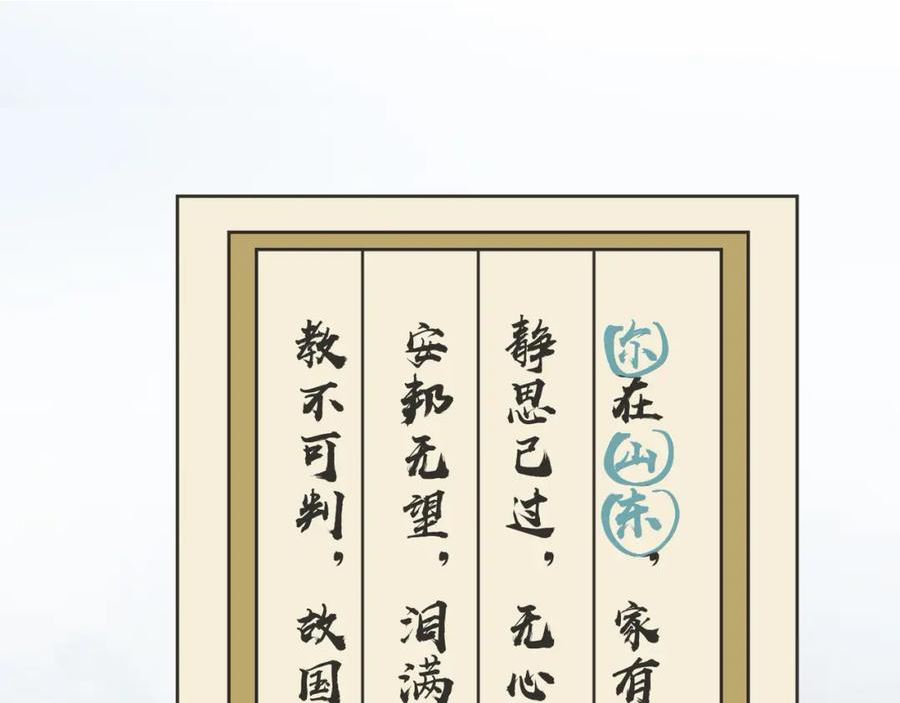 尔在山东,家有
静思己过,无心
安邦无望,泪满
教不可判,故国